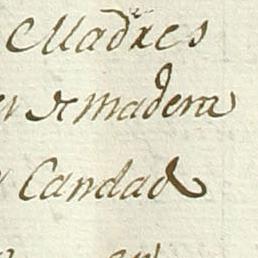 Madres
de madera
Candad